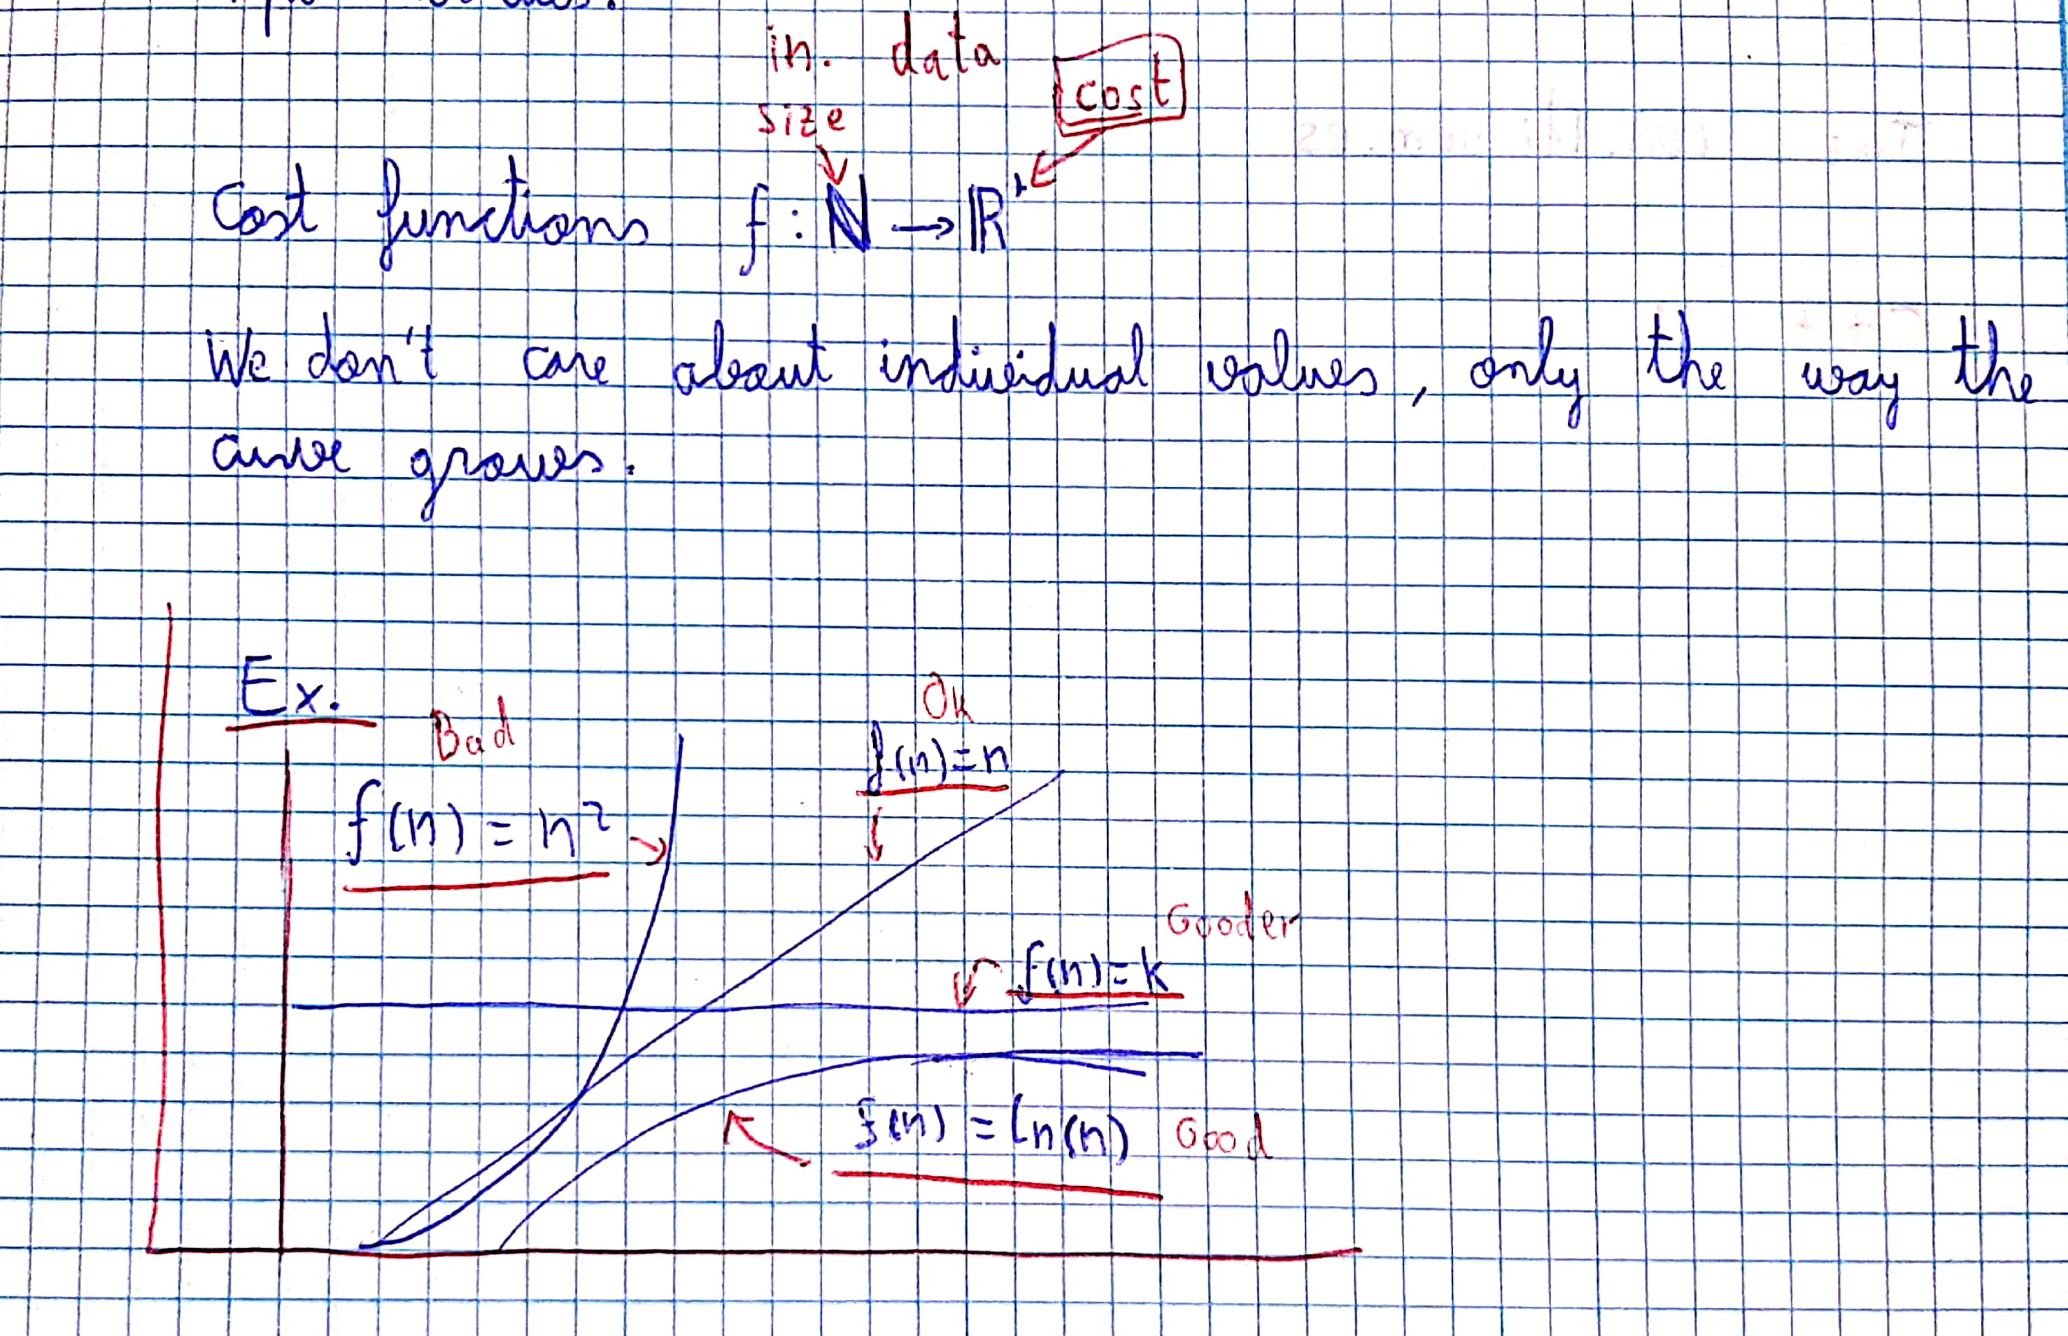 in. data
size
cost
Cost functions f : ℕ → ℝ⁺
We don't care about individual values, only the way the
curve grows.
Ex.
Bad
f(n) = n²
Ok
f(n) = n
Gooder
f(n) = k
f(n) = ln(n) Good